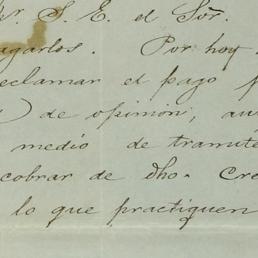 S. E. el Sor.
agarlos. Por hoy
eclamar el pago p
) de opinión, au
medio de tramite
cobrar de dho. Cre
lo que practiquen